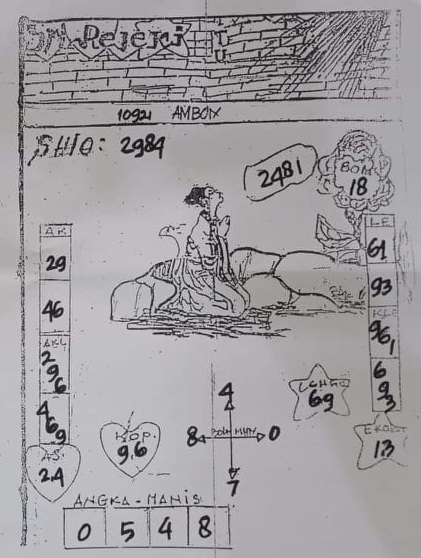 Sri Rejeki
TU
10921 AMBON
SHIO: 2984
2481
BOM
18
AK
29
46
AKL
2
9
6
4
6
9
AS
2.4
KOP.
9.6
4
8 BOLA MHN 0
7
69
LE
61
93
KLE
96,
6
9
3
EKOR
13
ANGKA-MANIS
0 5 4 8